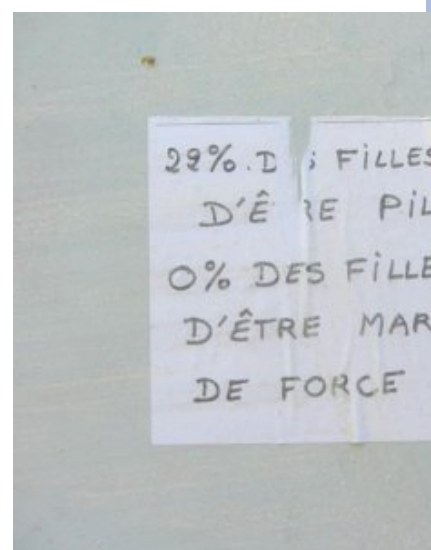 29% D S FILLES
D'Ê RE PIL
0% DES FILLE
D'ÊTRE MAR
DE FORCE